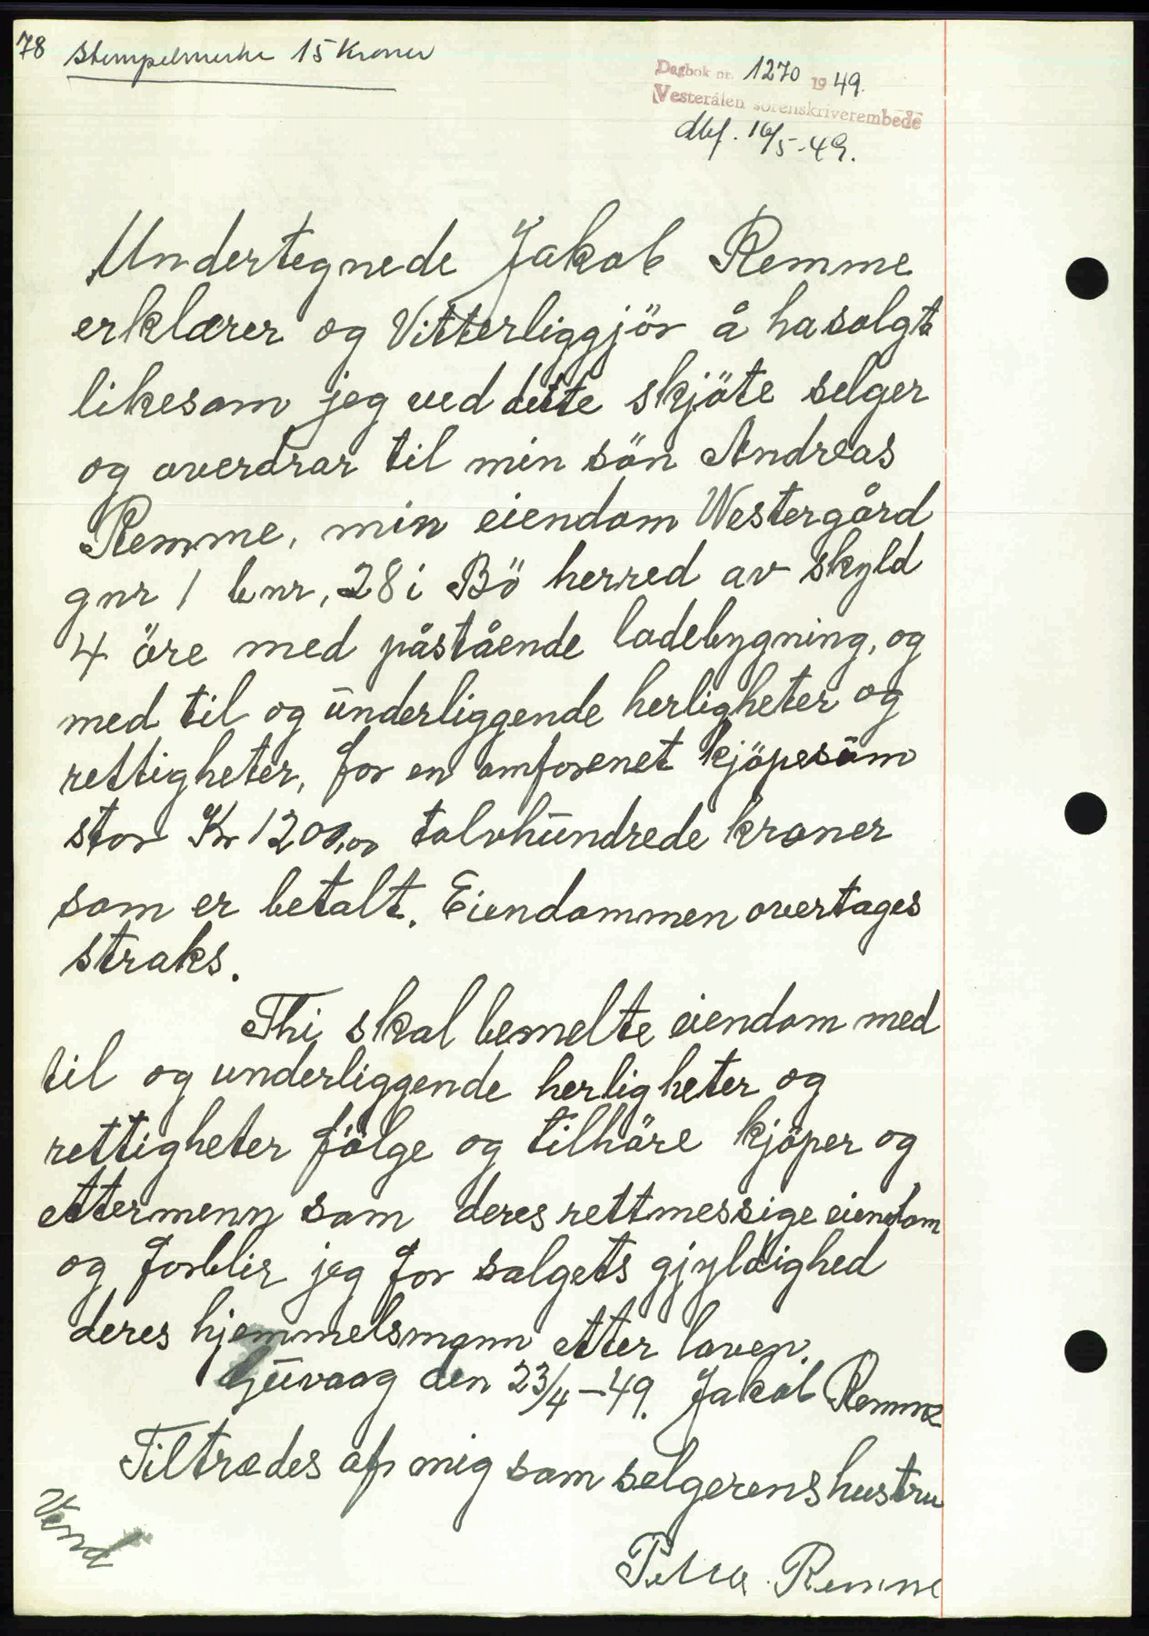 78 Stempelmerke 15 Kroner
Dagbok nr. 1270 1949.
Vesterålen sorenskriverembede
dbf. 16/5-49.
Undertegnede Jakob Remme
erklærer og Vitterliggjör å ha solgt
likesom jeg ved dette skjöte selger
og overdrar til min sön Andreas
Remme, min eiendom Westergård
gnr 1 bnr, 28 i Bö herred av skyld
4 öre med påstående ladebygning, og
med til og underliggende herligheter og
rettigheter, for en omforenet kjöpesum
stor Kr 1200,00 tolvhundrede kroner
som er betalt. Eiendommen overtages
straks.
Thi skal bemelte eiendom med
til og underliggende herligheter og
rettigheter fölge og tilhöre kjöper og
ettermenn som deres rettmessige eiendom
og forblir jeg for salgets gjyldighed
deres hjemmelsmann etter loven.
Guvaag den 23/4-49. Jakob Remme
Tiltrædes af mig som selgerens hustru
Vend
Petra Remme